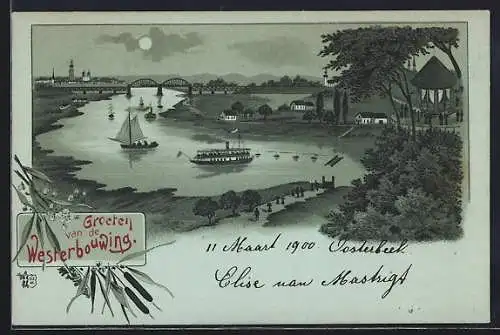 Groeten
van de
Westerbouwing.
11 Maart 1900. Oosterbeek.
Elise van Mastrigt